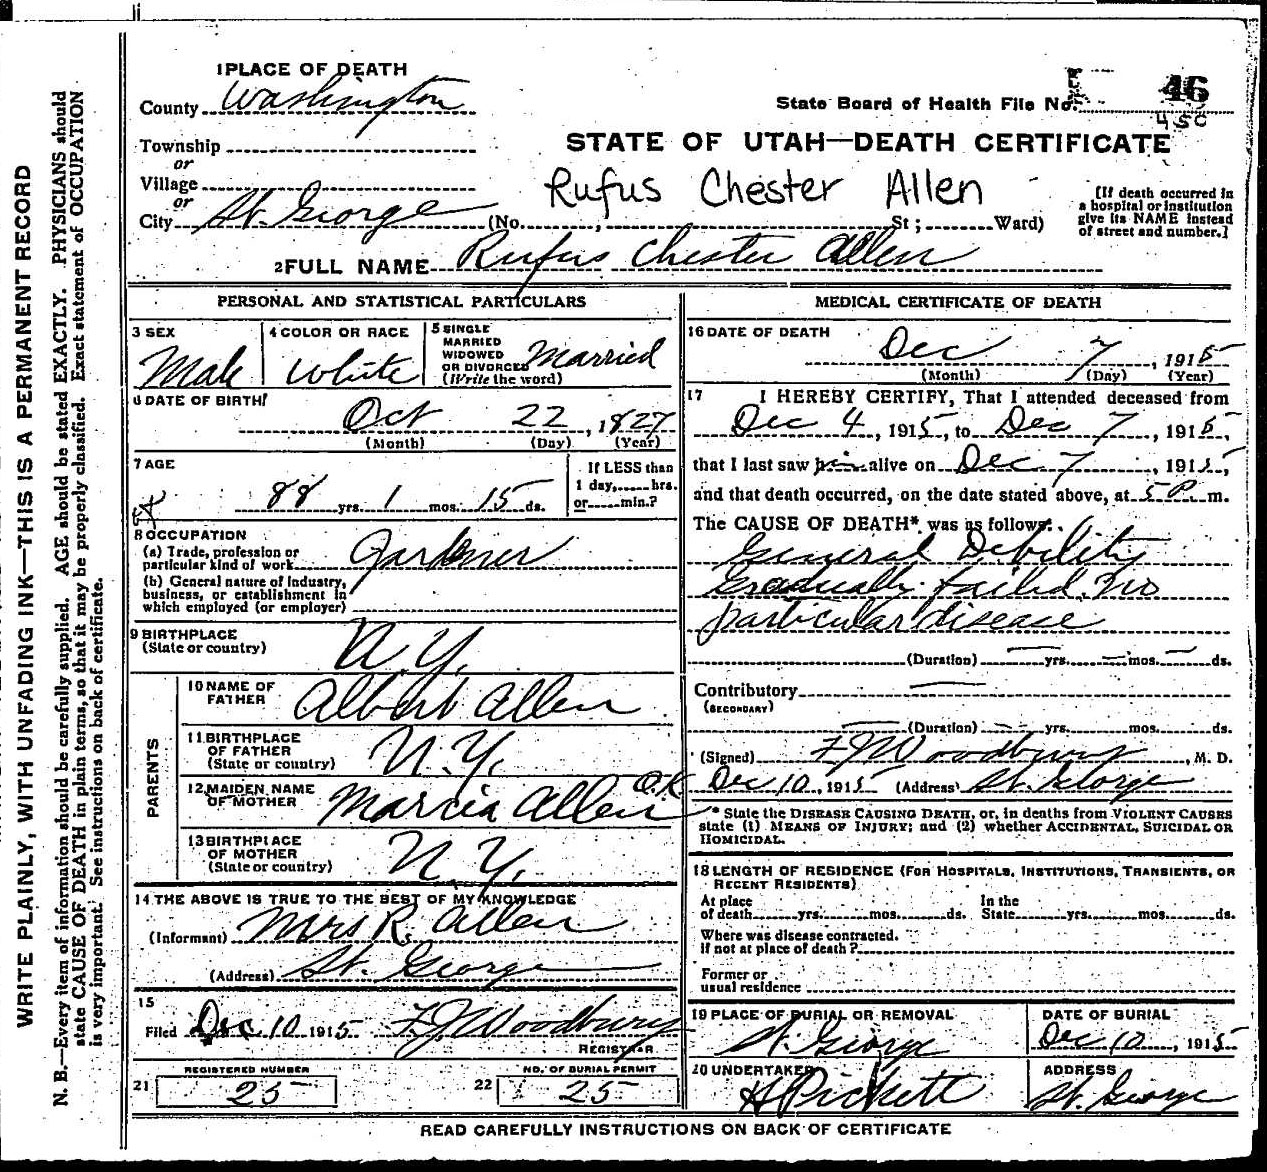 WRITE PLAINLY, WITH UNFADING INK—THIS IS A PERMANENT RECORD
N. B.—Every item of information should be carefully supplied. AGE should be stated EXACTLY. PHYSICIANS should
state CAUSE OF DEATH in plain terms, so that it may be properly classified. Exact statement of OCCUPATION
is very important. See instructions on back of certificate.
1 PLACE OF DEATH
County Washington
State Board of Health File No. 46
450
Township
or
Village
or
City St. George (No. , St; Ward)
STATE OF UTAH—DEATH CERTIFICATE
Rufus Chester Allen
(If death occurred in
a hospital or institution
give its NAME instead
of street and number.)
2 FULL NAME Rufus Chester Allen
PERSONAL AND STATISTICAL PARTICULARS
3 SEX
Male
4 COLOR OR RACE
White
5 SINGLE
MARRIED
WIDOWED
OR DIVORCED
(Write the word)
Married
6 DATE OF BIRTH
Oct 22, 1827
(Month) (Day) (Year)
7 AGE
88 yrs. 1 mos. 15 ds.
If LESS than
1 day, hrs.
or min.?
8 OCCUPATION
(a) Trade, profession or
particular kind of work Gardner
(b) General nature of industry,
business, or establishment in
which employed (or employer)
9 BIRTHPLACE
(State or country)
N.Y.
PARENTS
10 NAME OF
FATHER
Albert Allen
11 BIRTHPLACE
OF FATHER
(State or country)
N.Y.
12 MAIDEN NAME
OF MOTHER
Marcia Allen O.K
13 BIRTHPLACE
OF MOTHER
(State or country)
N.Y.
14 THE ABOVE IS TRUE TO THE BEST OF MY KNOWLEDGE
(Informant) Mrs R. Allen
(Address) St. George
15
Filed Dec 10 1915 F.J. Woodbury
REGISTRAR
REGISTERED NUMBER
21 25
NO. OF BURIAL PERMIT
22 25
MEDICAL CERTIFICATE OF DEATH
16 DATE OF DEATH
Dec 7, 1915
(Month) (Day) (Year)
17 I HEREBY CERTIFY, That I attended deceased from
Dec 4, 1915, to Dec 7, 1915,
that I last saw him alive on Dec 7, 1915,
and that death occurred, on the date stated above, at 5 P. m.
The CAUSE OF DEATH* was as follows:
General Debility
Gradually failed. No
particular disease
(Duration) yrs. mos. ds.
Contributory
(SECONDARY)
(Duration) yrs. mos. ds.
(Signed) F.J. Woodbury, M. D.
Dec 10, 1915 (Address) St. George
* State the DISEASE CAUSING DEATH, or, in deaths from VIOLENT CAUSES
state (1) MEANS OF INJURY; and (2) whether ACCIDENTAL, SUICIDAL OR
HOMICIDAL.
18 LENGTH OF RESIDENCE (FOR HOSPITALS, INSTITUTIONS, TRANSIENTS, OR
RECENT RESIDENTS)
At place
of death yrs. mos. ds.
In the
State yrs. mos. ds.
Where was disease contracted.
if not at place of death?
Former or
usual residence
19 PLACE OF BURIAL OR REMOVAL
St. George
DATE OF BURIAL
Dec 10, 1915
20 UNDERTAKER
H Pickett
ADDRESS
St. George
READ CAREFULLY INSTRUCTIONS ON BACK OF CERTIFICATE